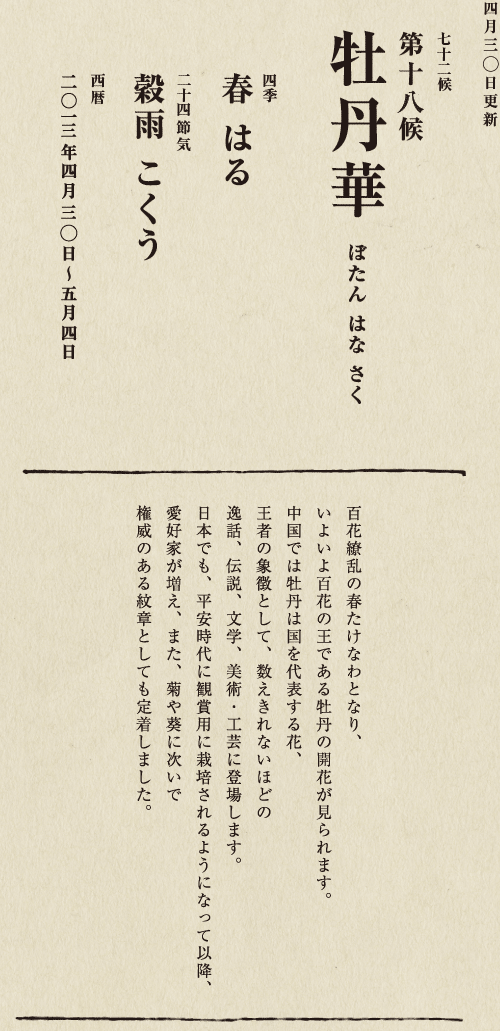 四月三〇日更新
七十二候
第十八候
牡丹華 ぼたん はな さく
四季
春 はる
二十四節気
穀雨 こくう
西暦
二〇一三年四月三〇日〜五月四日
百花繚乱の春たけなわとなり、
いよいよ百花の王である牡丹の開花が見られます。
中国では牡丹は国を代表する花、
王者の象徴として、数えきれないほどの
逸話、伝説、文学、美術・工芸に登場します。
日本でも、平安時代に観賞用に栽培されるようになって以降、
愛好家が増え、また、菊や葵に次いで
権威のある紋章としても定着しました。